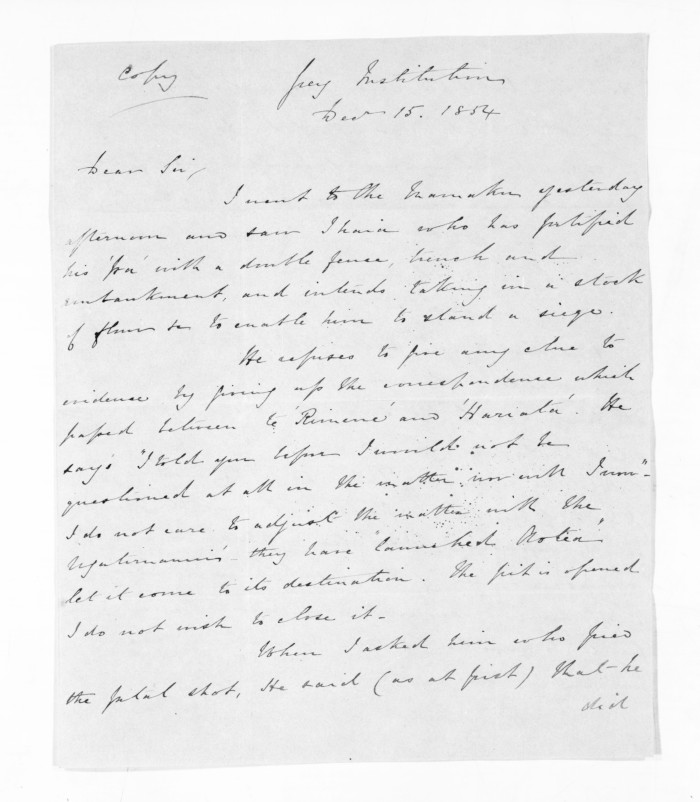 Copy
Grey Institution
Decr 15. 1854
Dear Sir,
I went to the Mamaku yesterday
afternoon and saw Ihaia who has fortified
his 'Pa' with a double fence, trench and
embankment, and intends taking in a stock
of flour &c to enable him to stand a siege.
He refuses to give any clue to
evidence by giving up the correspondence which
passed between te 'Rimene' and 'Hariata'. He
says "I told you before I would not be
questioned at all in the matter", nor will I now"-
I do not care to adjust the matter with the
Ngatiruanuis - they have launched 'Aotea'
let it come to its destination. The pit is opened
I do not wish to close it -
When I asked him who fired
the fatal shot, He said (as at first) that he
did